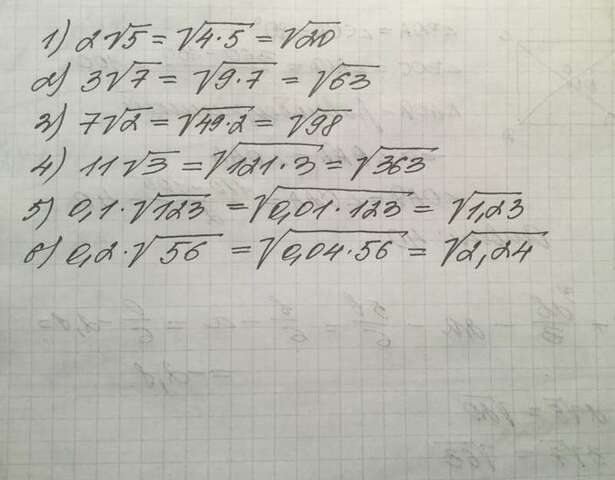 1) 2√5 = √4·5 = √20
2) 3√7 = √9·7 = √63
3) 7√2 = √49·2 = √98
4) 11√3 = √121·3 = √363
5) 0,1·√123 = √0,01·123 = √1,23
6) 0,2·√56 = √0,04·56 = √2,24